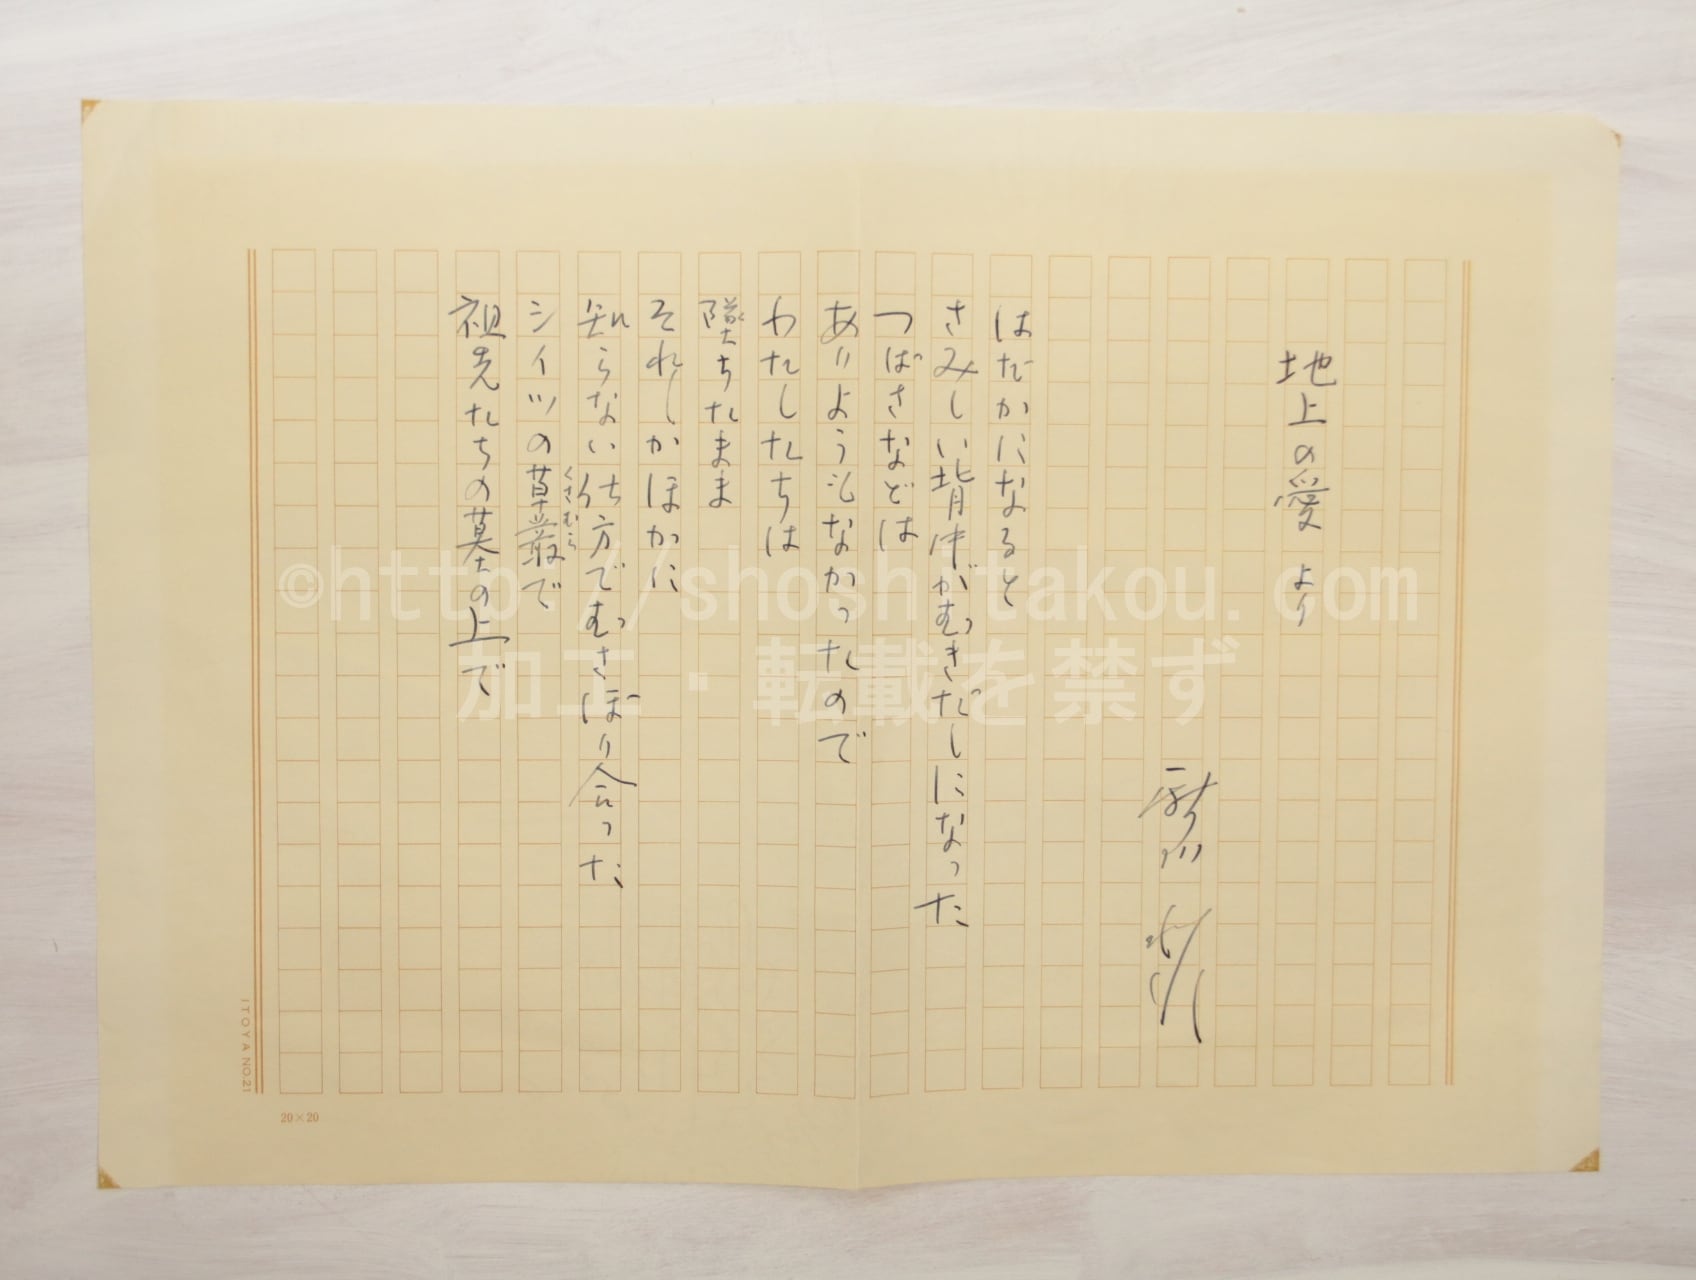 地上の愛 より
新川 和江
はだかになると
さみしい背中がむきだしになった
つばさなどは
ありようもなかったので
わたしたちは
墜ちたまま
それしかほかに
知らない仕方でむさぼり合った
シイツの草叢で
くさむら
祖先たちの墓の上で
ITOYA NO.21
20×20
©http://shoshi-takou.com
加工・転載を禁ず